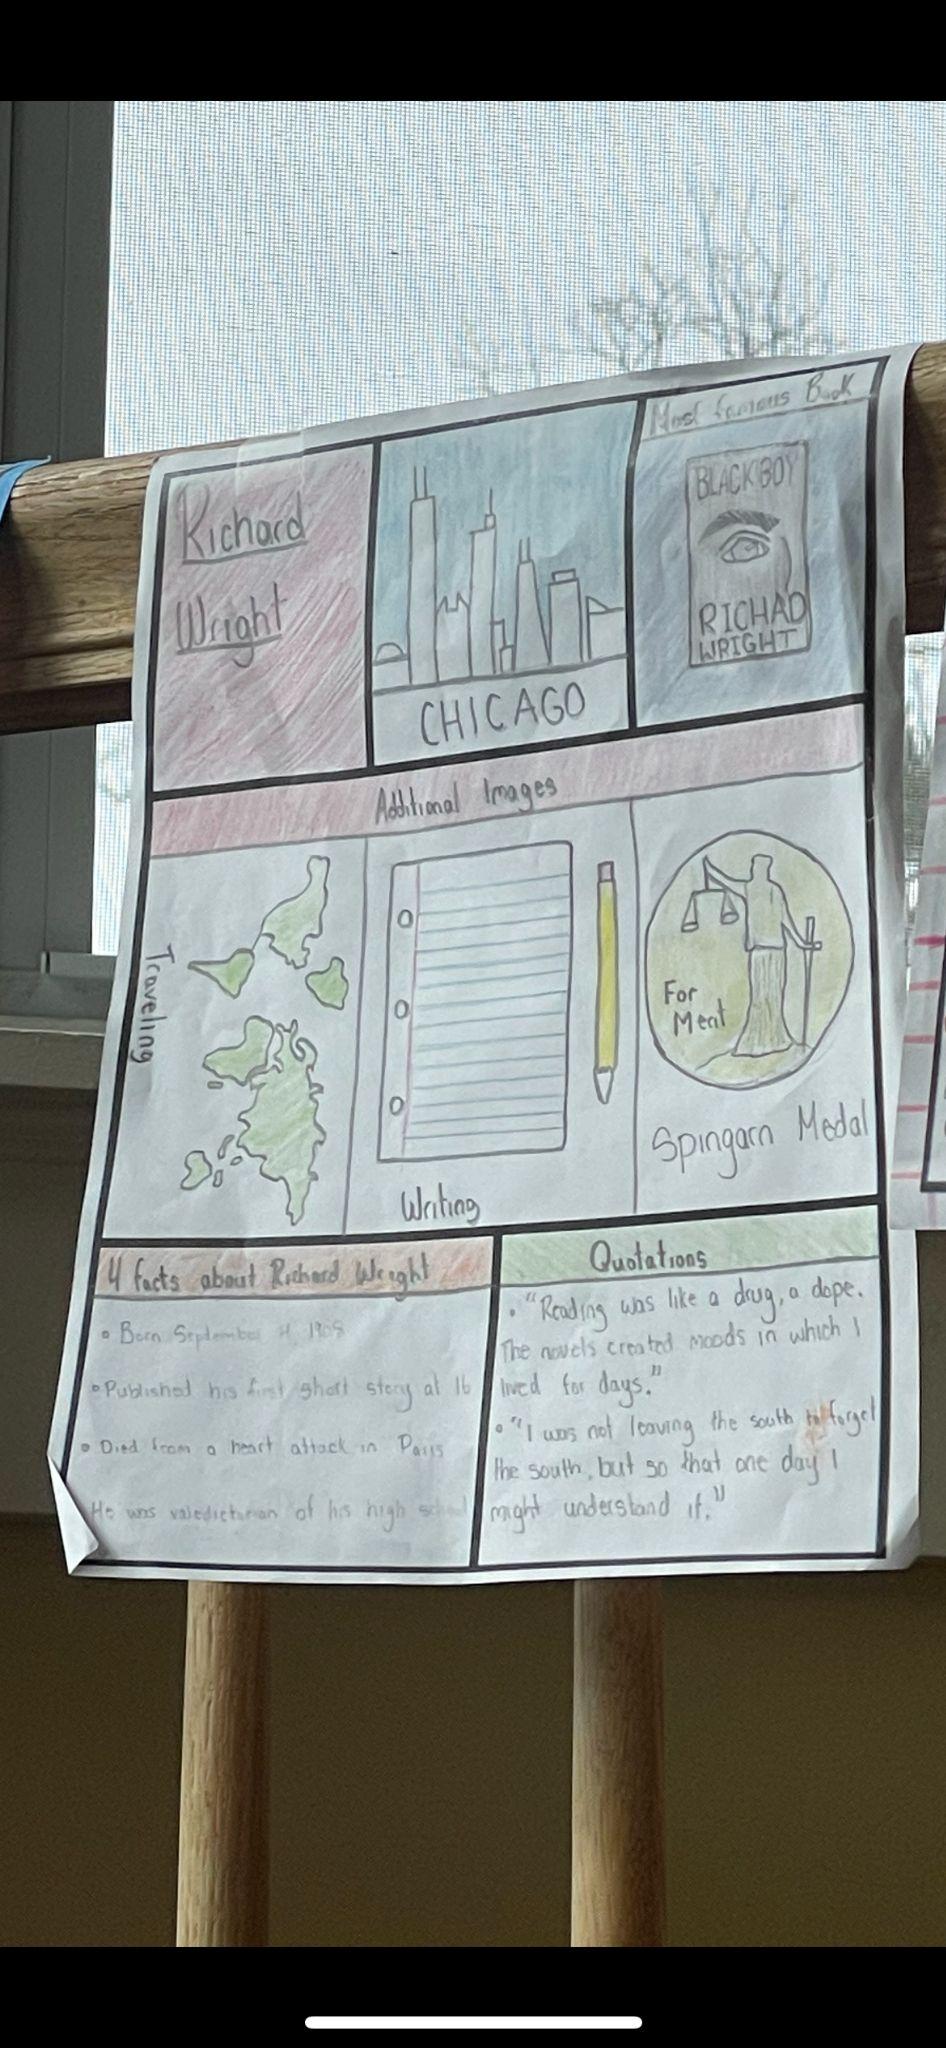 Richard
Wright
CHICAGO
Most famous Book
BLACK BOY
RICHAD
WRIGHT
Additional Images
Traveling
Writing
For
Merit
Spingarn Medal
4 facts about Richard Wright
• Born September 4, 1908
• Published his first short story at 16
• Died from a heart attack in Paris
He was valedictorian of his high school
Quotations
• "Reading was like a drug, a dope.
The novels created moods in which I
lived for days."
• "I was not leaving the south to forget
the south, but so that one day I
might understand it."